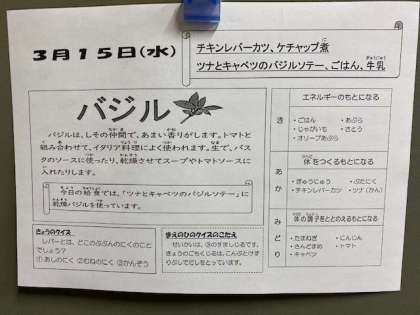 3月15日(水)
チキンレバーカツ、ケチャップ煮
ツナとキャベツのバジルソテー、ごはん、牛乳
バジル
バジルは、しその仲間で、あまい香りがします。トマトと
組み合わせて、イタリア料理によく使われます。生で、パス
タのソースに使ったり、乾燥させてスープやトマトソースに
入れたりします。
今日の給食では、「ツナとキャベツのバジルソテー」に
乾燥バジルを使っています。
きょうのクイズ
レバーとは、どこのぶぶんのにくのこと
でしょう?
①あしのにく ②むねのにく ③かんぞう
まえのひのクイズのこたえ
せいかいは、③のすましじるです。
きょうのごもくじるは、こんぶとけず
りぶしでだしをとっています。
エネルギーのもとになる
き
・ごはん ・あぶら
・じゃがいも ・さとう
・オリーブあぶら
体をつくるもとになる
あか
・ぎゅうにゅう ・ぶたにく
・チキンレバーカツ ・ツナ(かん)
体の調子をととのえるもとになる
みどり
・たまねぎ ・にんじん
・さんどまめ ・トマト
・キャベツ